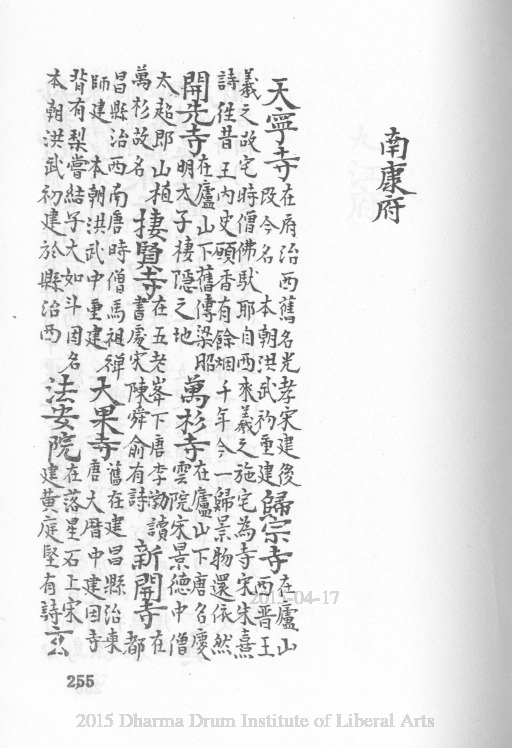 南康府
天寧寺
在府治西舊名光孝宋建後
改今名 本朝洪武初重建
歸宗寺
在廬山
西晉王
義之故宅時僧佛馱耶自西來義之施宅為寺宋朱熹
詩往昔王內史頋香有餘烟千年今一歸景物還依然
開先寺
在廬山下舊傳梁昭
明太子棲隱之地
萬杉寺
在廬山下唐名慶
雲院宋景德中僧
太超即山植
萬杉故名
棲賢寺
在五老峯下唐李渤讀
書處宋陳舜俞有詩
新開寺
在
都
昌縣治西南唐時僧馬祖禅
師建 本朝洪武中重建
大果寺
舊在建昌縣治東
唐大曆中建因寺
背有梨嘗結子大如斗因名
本朝洪武初建於縣治西
法安院
在落星石上宋
建黄庭堅有詩
玄
255
2015-04-17
2015 Dharma Drum Institute of Liberal Arts